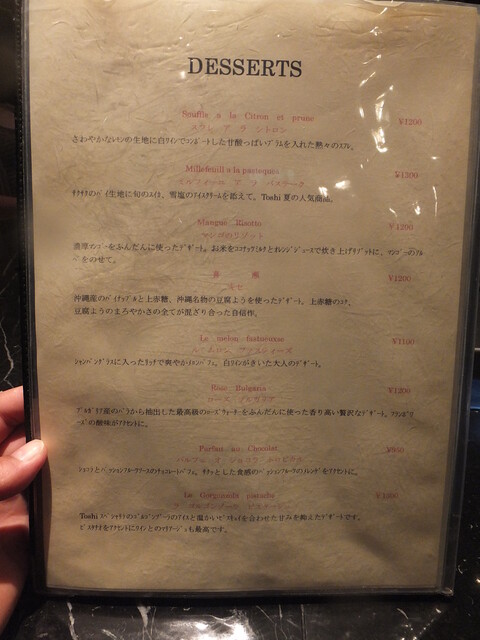 DESSERTS
Souffle a la Citron et prune ¥1200
スフレ ア ラ シトロン
さわやかなレモンの生地に白ワインでコンポートした甘酸っぱいプラムを入れた熱々のスフレ。
Millefeuill a la pasteques ¥1300
ミルフィーユ ア ラ パステーク
サクサクのパイ生地に旬のスイカ、雪塩のアイスクリームを添えて、Toshi 夏の人気商品。
Mangue Risotto ¥1200
マンゴのリゾット
濃厚マンゴーをふんだんに使ったデザート。お米をココナッツミルクとオレンジジュースで炊き上げリゾットに。マンゴーのアル
をのせて。
¥1200
沖縄産のパイナップルと上赤糖、沖縄名物の豆腐ようを使ったデザート。上赤糖のコク、
豆腐ようのまろやかさの全てが混ざり合った自信作。
Le melon ¥1100
シャンパングラスに入ったリッチで爽やかメロンパフェ。白ワインがきいた大人のデザート。
Rose Bulgaria ¥1200
ローズ ブルガリア
ブルガリア産のバラから抽出した最高級のローズウォーターをふんだんに使った香り高い贅沢なデザート。フランボワ
ーズの酸味がアクセントに。
Parfait au Chocolat ¥950
ショコラとパッションフルーツソースのチョコレートパフェ。サクッとした食感のパッションフルーツのメレンゲをアクセントに。
Le Gorgonzola pistache
Toshi スペシャリテのゴルゴンゾーラのアイスと温かいビスキュイを合わせた甘みを抑えたデザートです。
ピスタチオをアクセントにワインとのマリアージュも最高です。